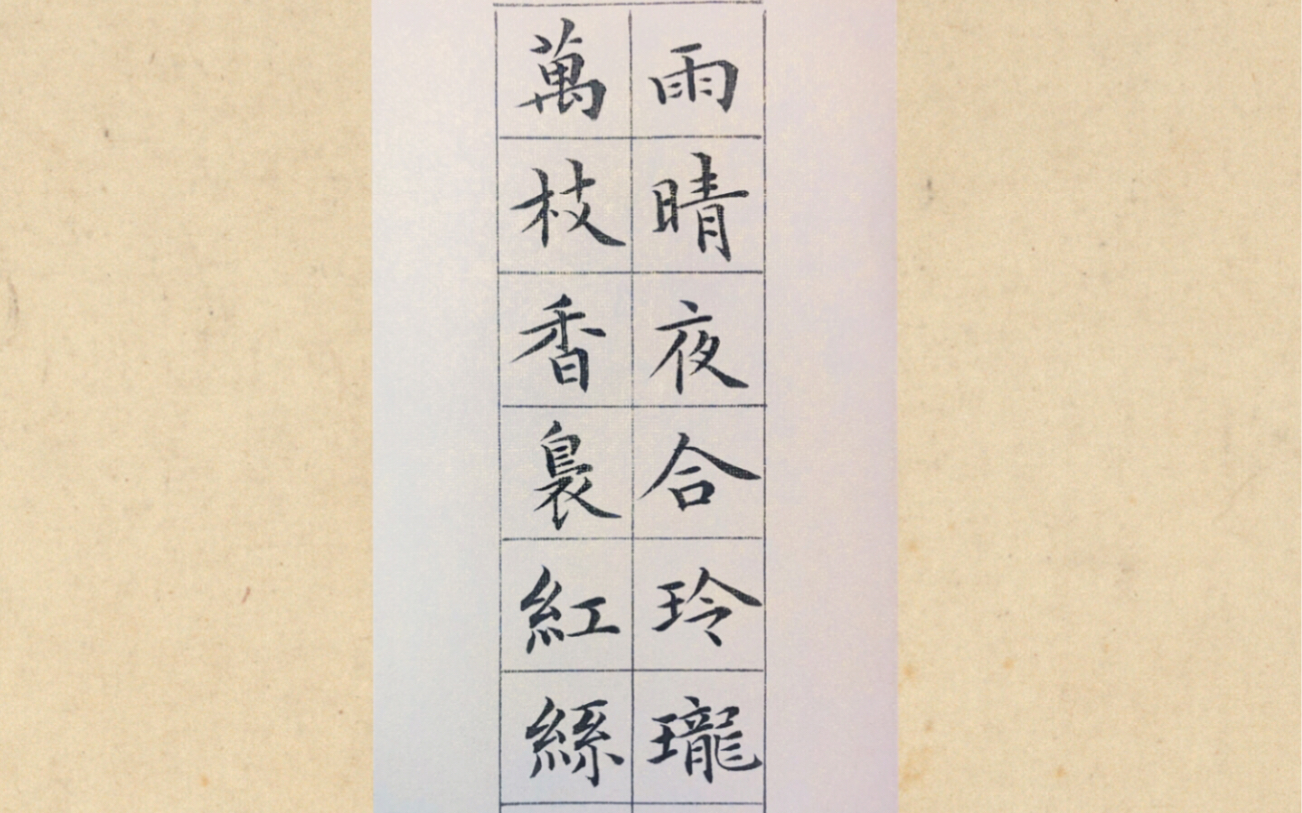 雨晴夜合玲瓏
萬枝香裊紅絲